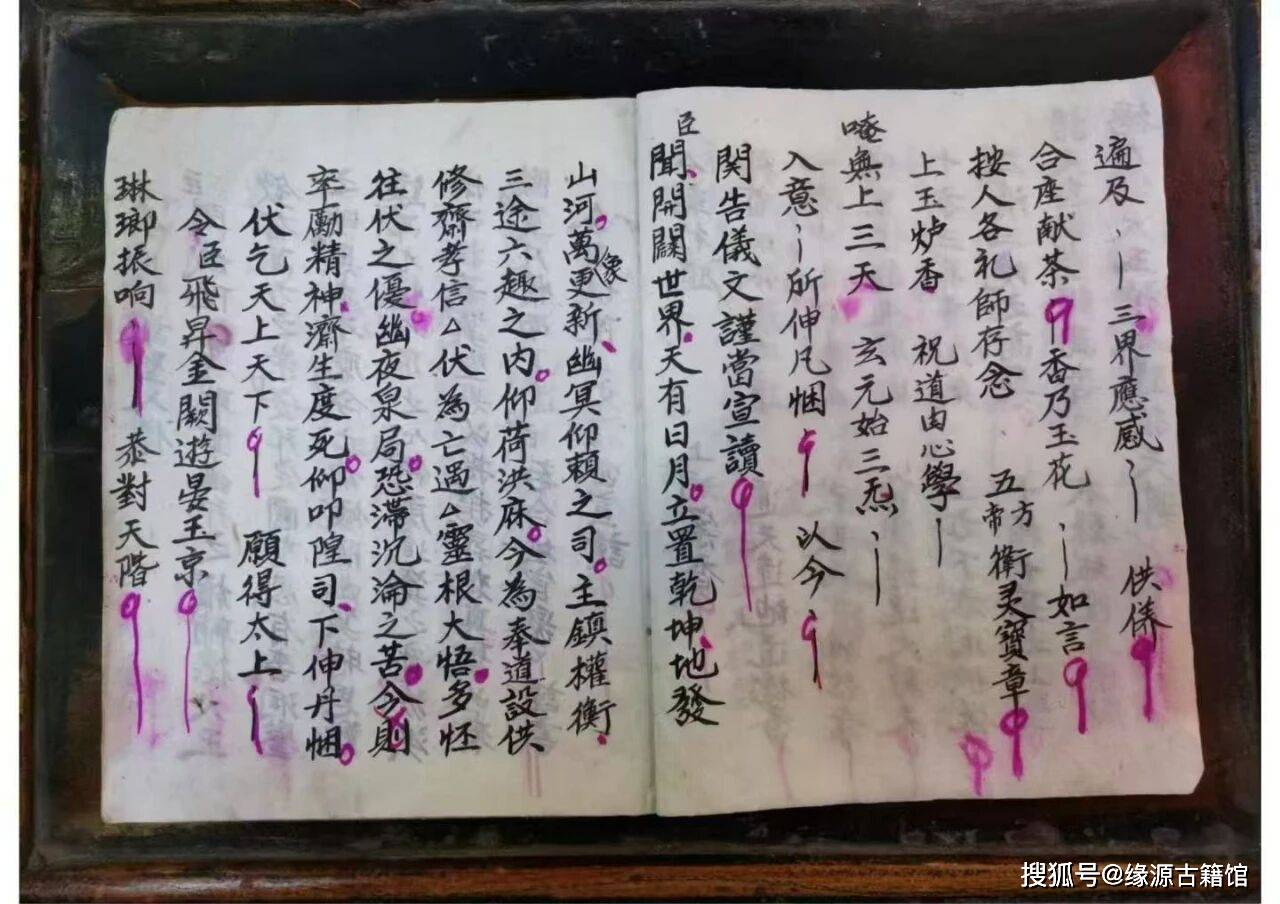 遍及 三界應感 供俻
合座献茶 香乃玉花 如言
按人各礼師存念 五方五帝衛灵寶章
上玉炉香 祝道由心學
唵無上三天 玄元始三炁
入意 所伸凡悃 以今
関告儀文謹當宣讀
臣聞開闢世界天有日月立置乾坤地發
山河萬象更新幽冥仰賴之司主鎮權衡
三途六趣之内仰荷洪庥今為奉道設供
修齋孝信△伏為亡過△靈根大悟多怌
往伏之優幽夜泉局恐滞沉淪之苦今則
卒勵精神濟生度死仰叩隍司下伸丹悃
伏乞天上天下 願得太上
令臣飛昇金闕遊晏玉京
琳瑯振响 恭對天階
搜狐号@缘源古籍馆